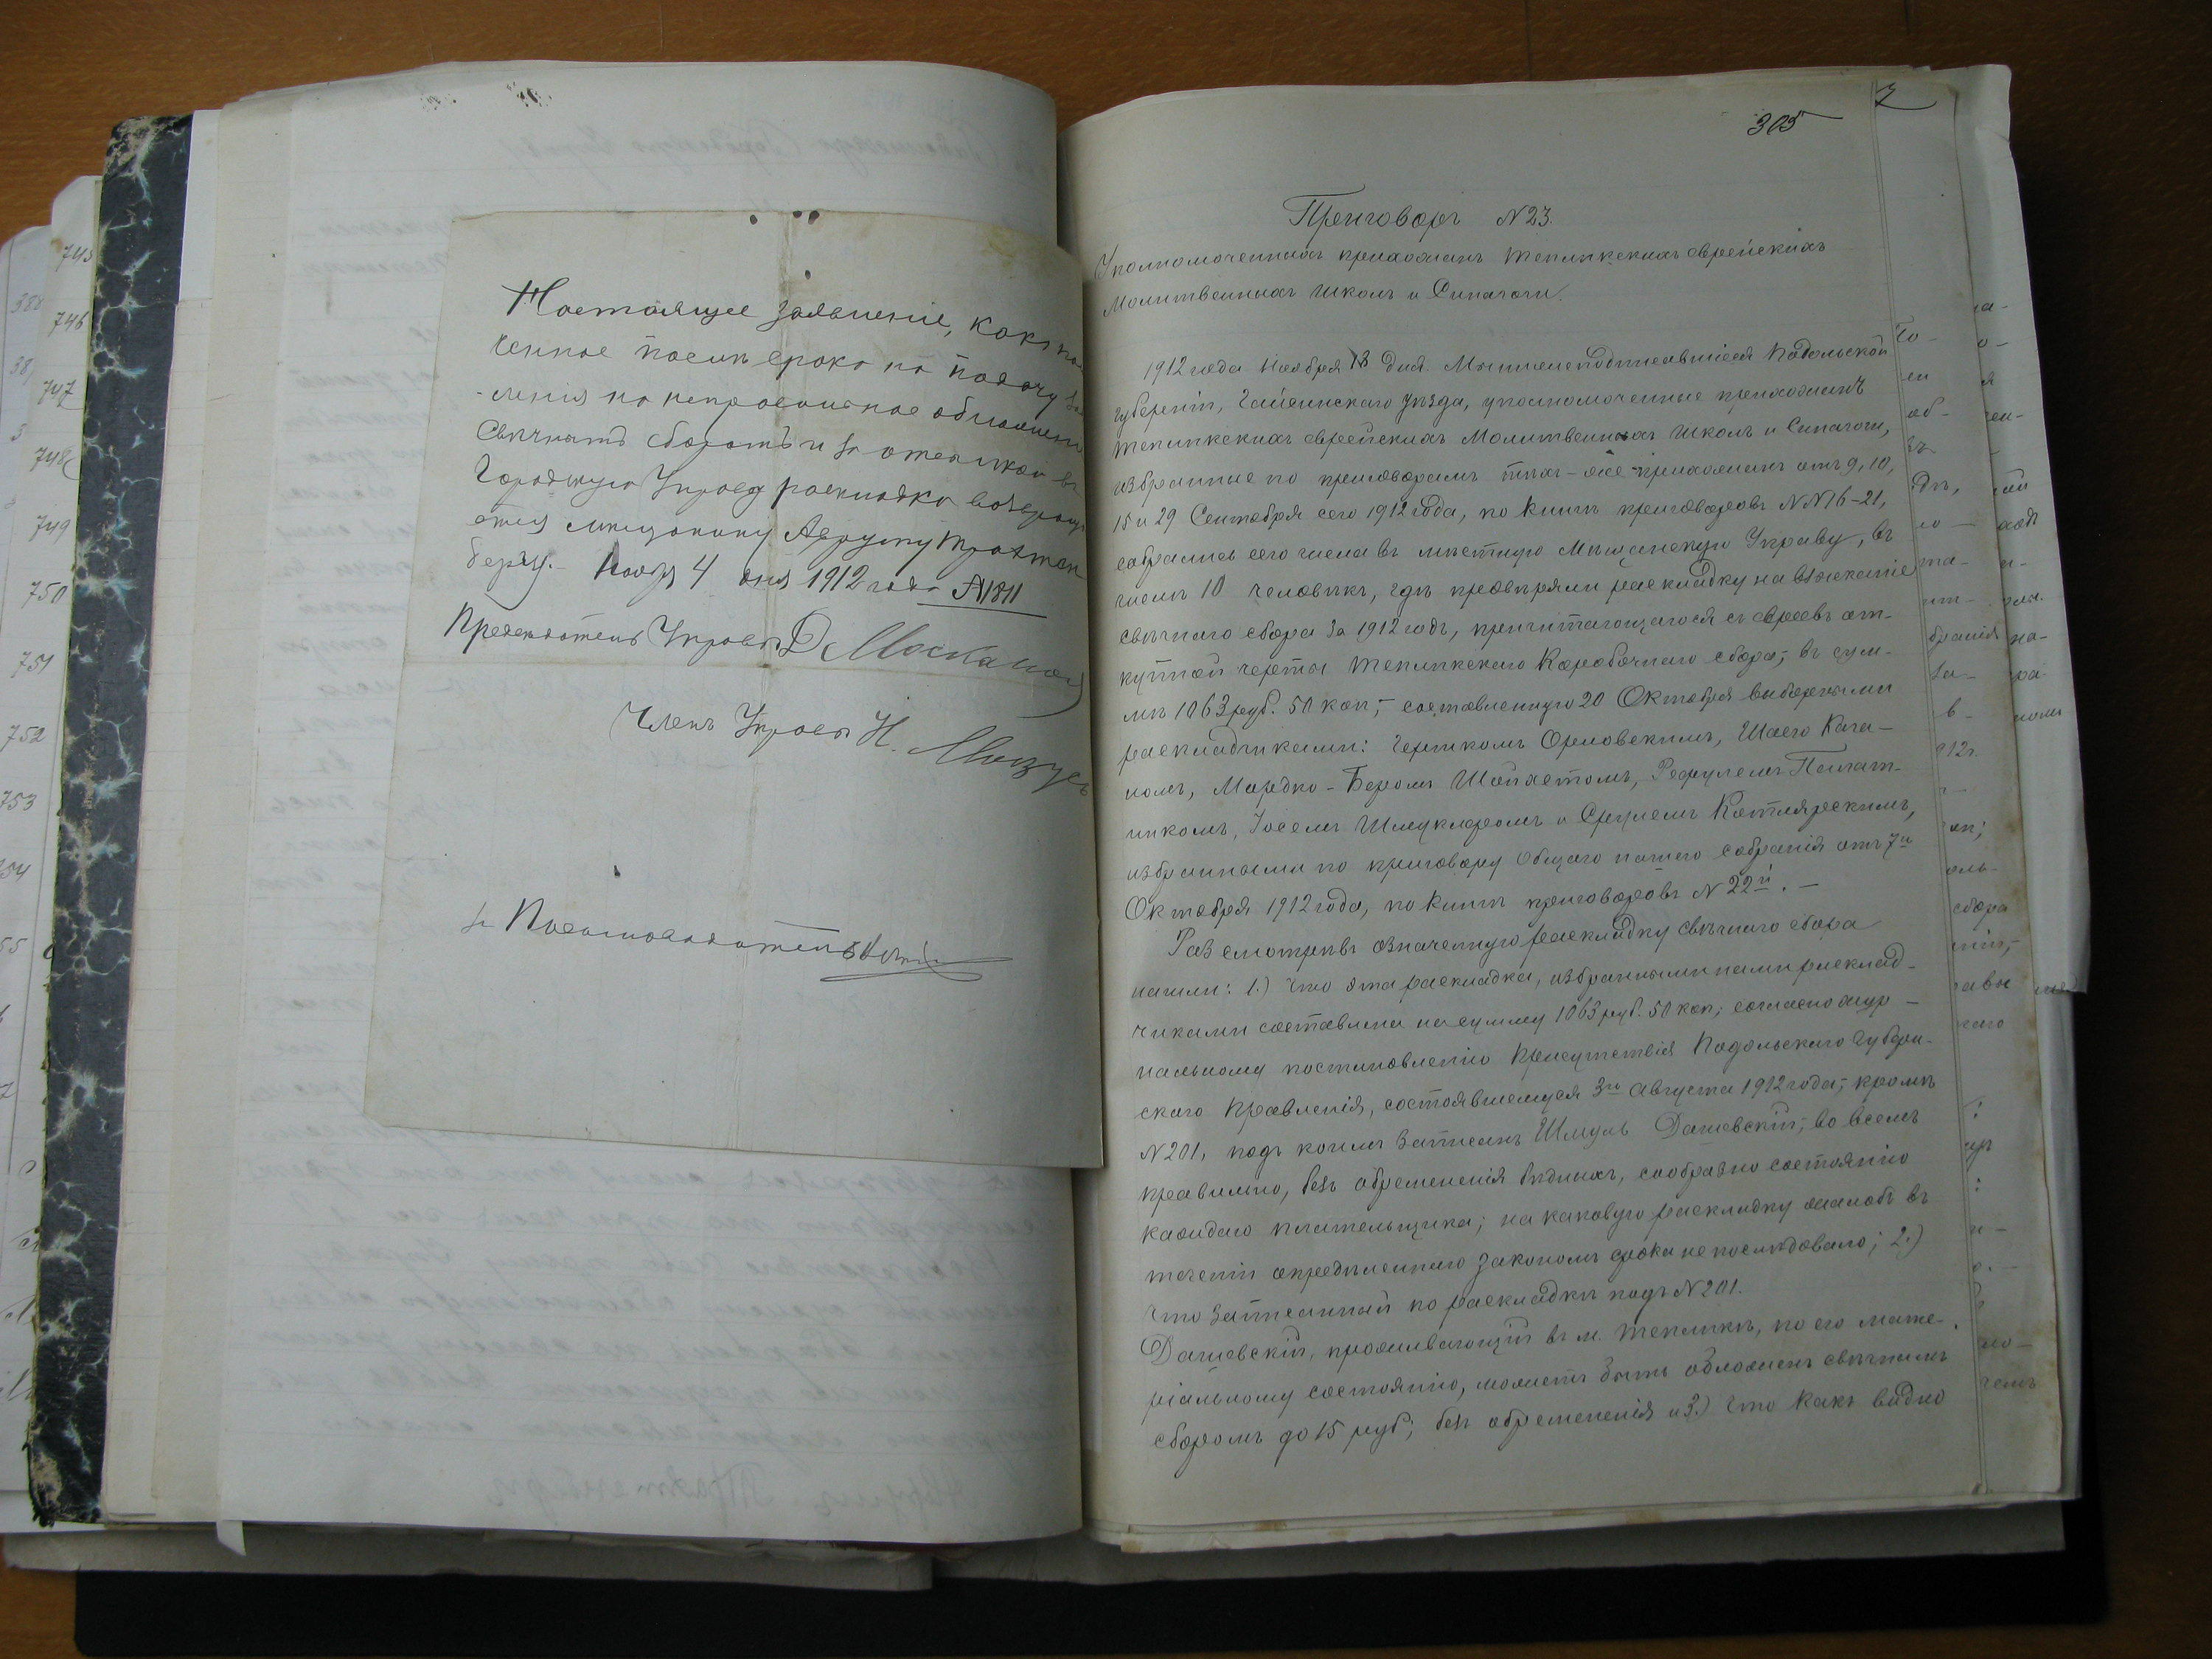 745
746
747
748
749
750
751
752
753
Настоящее заявленіе, какъ
ченное послѣ срока на подачу
-ленія на неправильное обложеніе
Свѣчнымъ сборомъ и за отсылкой въ
Городскую Управу раскладки возвращ
ется мѣщанину Аврумy Трахтен
бергу. - Ноября 4 дня 1912 года №1811
Предсѣдатель Управы
Членъ Управы Н.
305
7
Приговоръ №23.
Уполномоченныхъ прихожанъ Тепликскихъ еврейскихъ
Молитвенныхъ школъ и Синагоги.
1912 года Ноября 13 дня. Мы нижеподписавшіеся Подольской
губерніи, Гайсинскаго уѣзда, уполномоченные прихожанъ
Тепликскихъ еврейскихъ Молитвенныхъ школъ и Синагоги,
избранные по приговорамъ тѣхъ-же прихожанъ отъ 9, 10,
15 и 29 Сентября сего 1912 года, по книгѣ приговоровъ №№ 16-21,
собрались сего числа въ мѣстную Мѣщанскую Управу, въ
числѣ 10 человѣкъ, гдѣ провѣряли раскладку на взысканіе
свѣчнаго сбора за 1912 годъ, причитающагося съ евреевъ от-
купной черты Тепликскаго Коробочнаго сбора, въ сум-
мѣ 1063 руб. 50 коп; - составленную 20 Октября выборными
раскладчиками: Гершкомъ Орловскимъ, Шаею Кага-
номъ, Мордко-Беромъ Шойхетомъ, Рефулемъ Пилат-
никомъ, Іоселемъ Шмуклеромъ и Срулемъ Котляревскимъ,
избранными по приговору общаго нашего собранія отъ 7го
Октября 1912 года, по книгѣ приговоровъ №22й. -
Разсмотрѣвъ означенную раскладку свѣчнаго сбора
нашли: 1.) Что эта раскладка, избранными нами расклад-
чиками составлена на сумму 1063 руб. 50 коп; согласно жур-
нальному постановленію присутствія Подольскаго Губерн-
скаго Правленія, состоявшемуся 3го Августа 1912 года, - кромѣ
№201, подъ коимъ записанъ Шмуль Дашевскій, во всемъ
правильно, безъ обремененія бѣдныхъ, сообразно состоянію
каждаго плательщика; на каковую раскладку жалобъ въ
теченіи опредѣленнаго закономъ срока не послѣдовало; 2.)
Что записанный по раскладкѣ подъ №201.
Дашевскій, проживающій въ м. Тепликѣ, по его мате-
ріальному состоянію, можетъ быть обложенъ свѣчнымъ
сборомъ до 15 руб; безъ обремененія и 3.) Что какъ видно